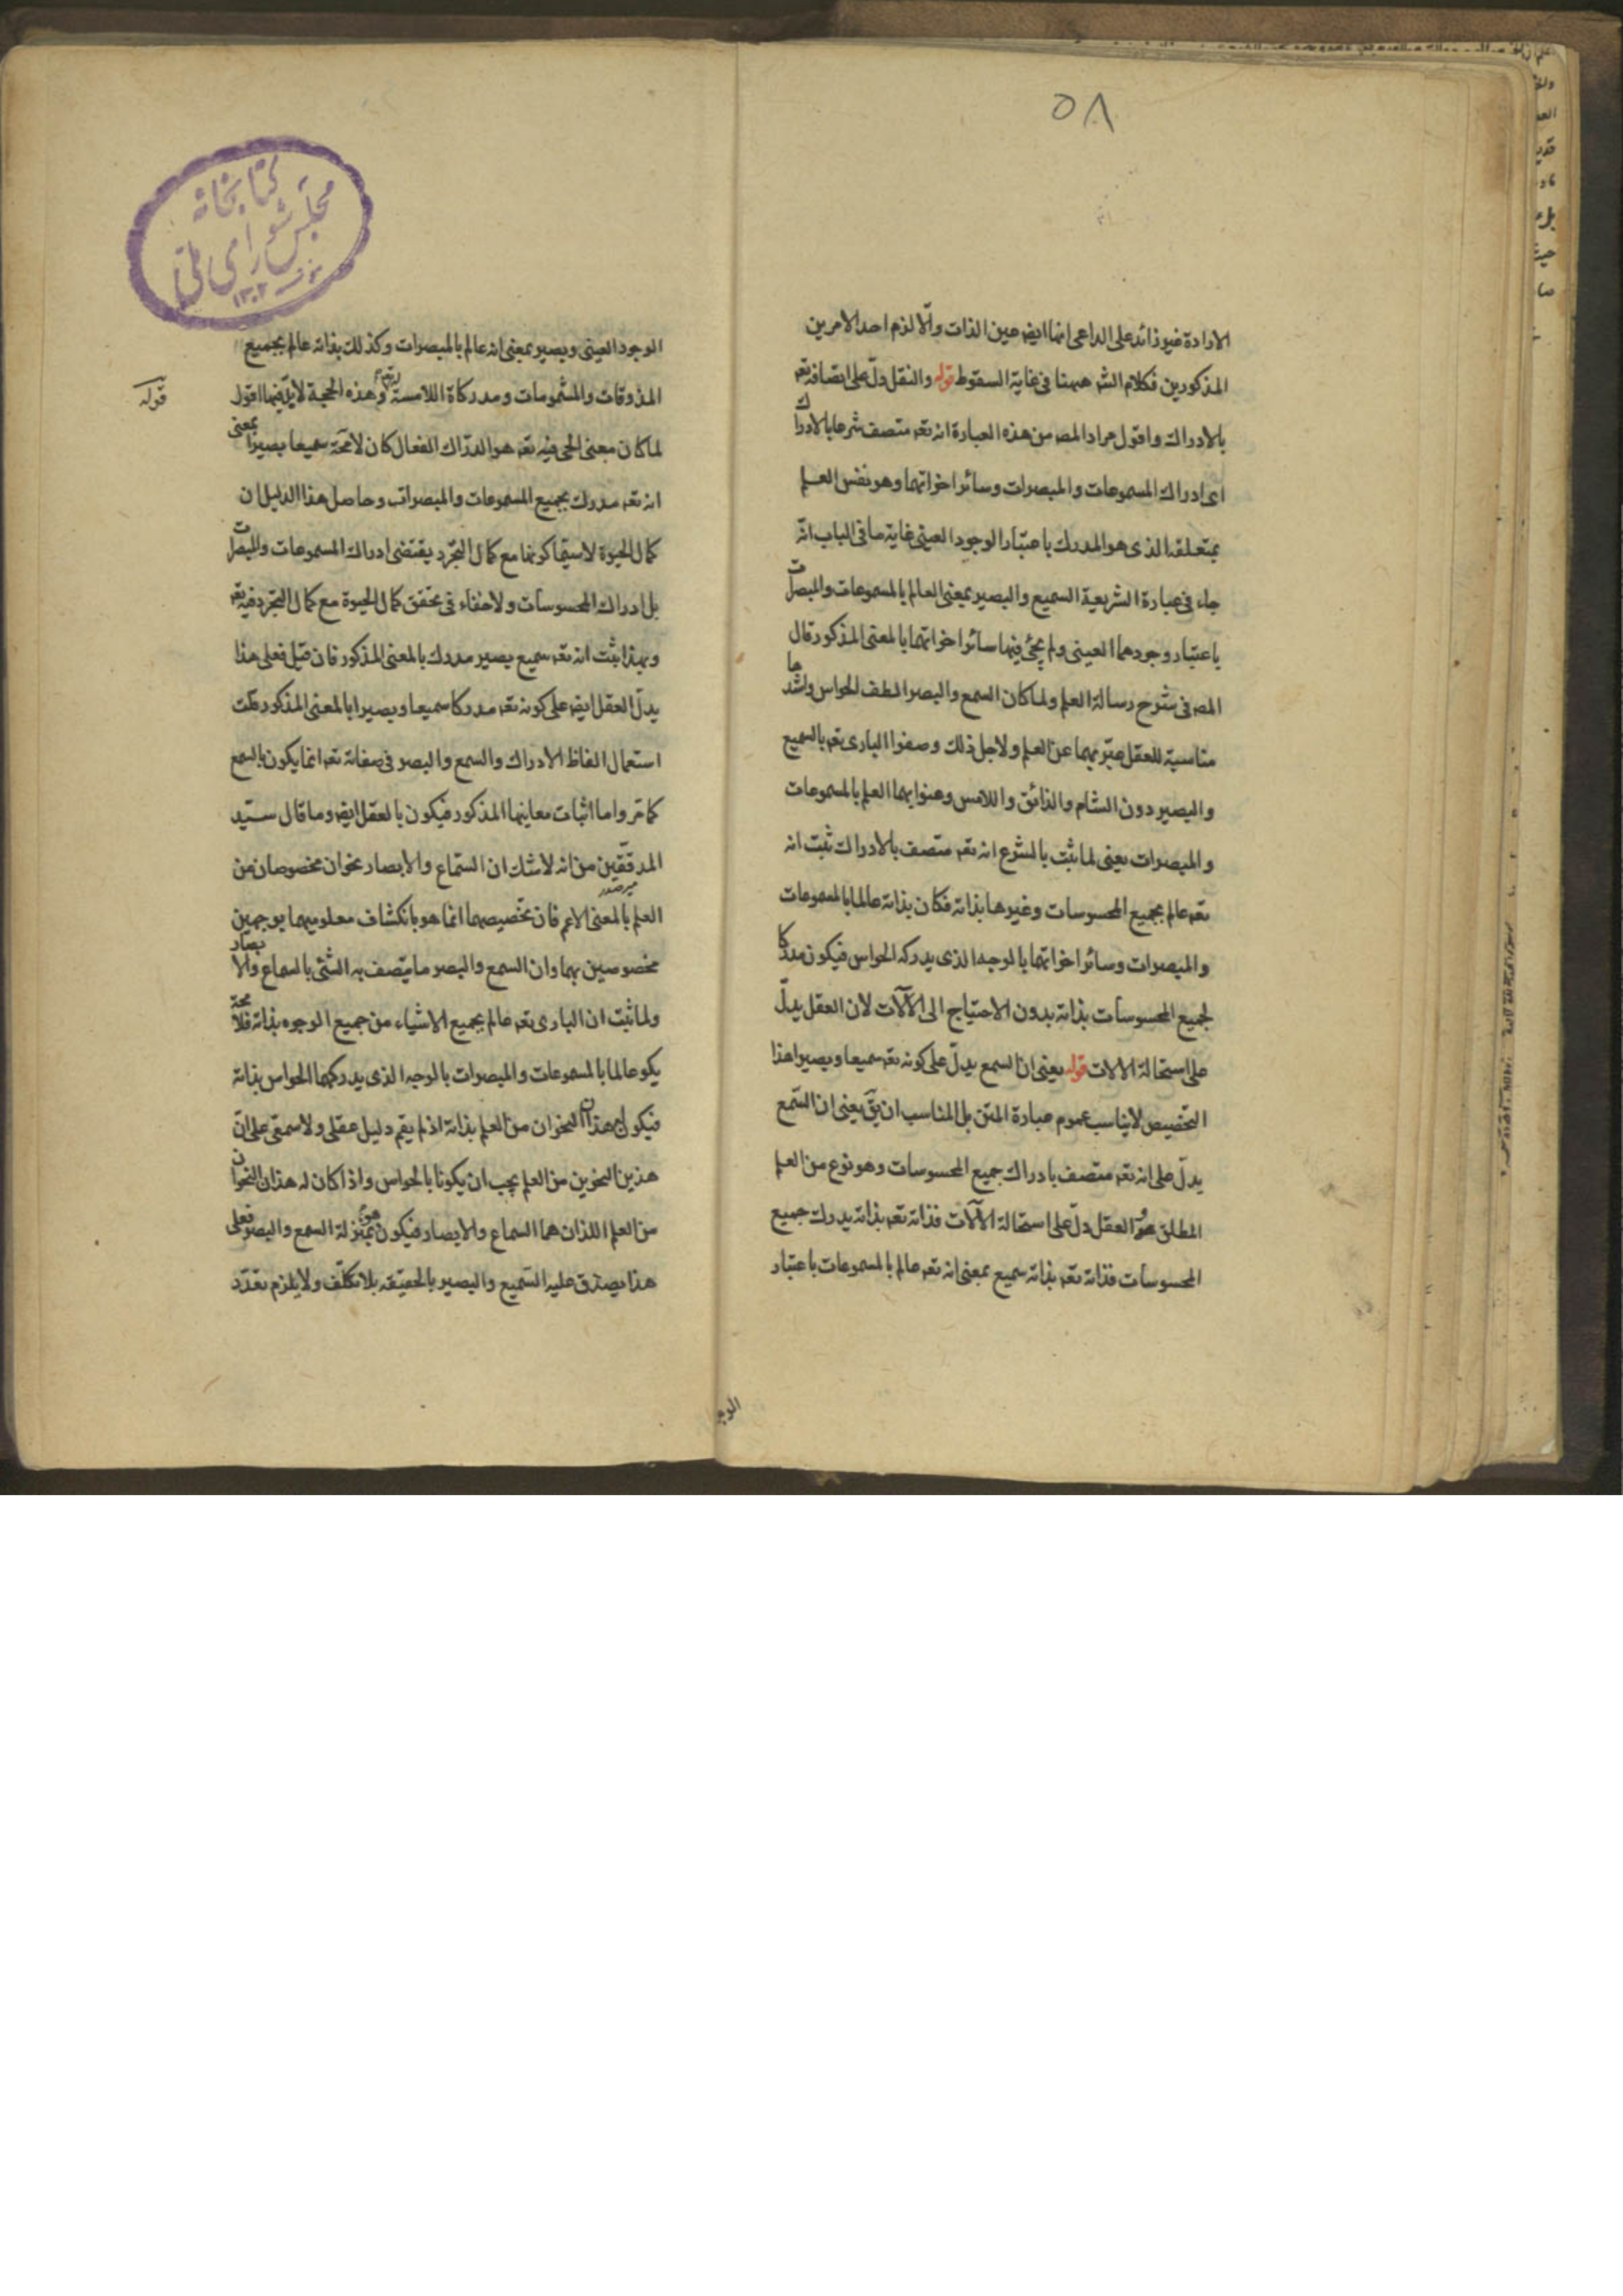 ٥٨
الارادة غير زائد على الداعى انما ايضا عين الذات والا لزم احد الامرين
المذكورين فكلام الشر ههنا فى غاية السقوط قوله والنقل دلّ على اتصافه تعه
بالادراك واقول مراد المصه من هذه العبارة انه تعه متصف شرعا بالادراك
اى ادراك المسموعات والمبصرات وسائر اخواتهما وهو نفس العلم
بمتعلقه الذى هو المدرك باعتبار الوجود العينى غاية ما فى الباب انّه
جاء فى عبارة الشريعة السميع والبصير بمعنى العالم بالمسموعات والمبصرات
باعتبار وجودهما العينى ولم يجئ فيها سائر اخواتهما بالمعنى المذكور قال
المصه فى شرح رسالة العلم ولما كان السمع والبصر الطف الحواس واشدها
مناسبة للعقل عبّر بهما عن العلم ولاجل ذلك وصفوا البارى تعه بالسميع
والبصير دون الشام والذائق واللامس وعنوا بهما العلم بالمسموعات
والمبصرات يعنى لما ثبت بالشرع انه تعه متصف بالادراك ثبت انه
تعه عالم بجميع المحسوسات وغيرها بذاته فكان بذاته عالما بالمسموعات
والمبصرات وسائر اخواتهما بالوجه الذى يدركه الحواس فيكون مدركا
لجميع المحسوسات بذاته بدون الاحتياج الى الآلات لان العقل يدلّ
على استحالة الالات قوله يعنى ان السمع يدلّ على كونه تعه سميعا وبصيرا هذا
التخصيص لا يناسب عموم عبارة المتن بل المناسب ان يقَ يعنى ان السّمع
يدلّ على انه تعه متصف بادراك جميع المحسوسات وهو نوع من العلم
المطلق والعقل دلّ على استحالة الآلات فذاته تعه بذاته يدرك جميع
المحسوسات فذاته تعه بذاته سميع بمعنى انه تعه عالم بالمسموعات باعتبار
الوجو
كتابخانه
مجلس شوراى ملّى
١٣٠٢
الوجود العينى وبصير بمعنى انه عالم بالمبصرات وكذلك بذاته عالم بجميع
المذوقات والمشمومات ومدركاة اللامسة وهذه الحجية لا فيها اقول
قوله
لما كان معنى الحى فيه تعه هو الدرّاك الفعال كان لامحَة سميعا بصيرا بمعنى
انه تعه مدرك بجميع المسموعات والمبصرات وحاصل هذا الدليل ان
كمال الحيوة لاسيّما كونها مع كمال التجّرد يقتضى ادراك المسموعات والمبصرات
بل ادراك المحسوسات ولا خفاء فى تحقق كمال الحيوة مع كمال التجرد فيه تعه
وبهذا ثبت انه تعه سميع بصير مدرك بالمعنى المذكور فان قيل فعلى هذا
يدلّ العقل ايضا على كونه تعه مدركا سميعا وبصيرا بالمعنى المذكور قلت
استعمال الفاظ الادراك والسمع والبصر فى صفاته تعه انما يكون بالسمع
كما مّر واما اثبات معاينها المذكور فيكون بالعقل ايضا وما قال سيّد
المدققين من انه لا شك ان السّماع والابصار نحوان مخصوصان من
مير صدر
العلم بالمعنى الاعم فان تخّصيصهما انما هو بانكشاف معلوميهما بوجهين
مخصوصين بهما وان السمع والبصر ما يتّصف به الشئى بالسماع والابصار
ولما ثبت ان البارى تعه عالم بجميع الاشياء من جميع الوجوه بذاته فلا محّة
يكو عالما بالمسموعات والمبصرات بالوجه الذى يدركهما الحواس بذاته
فيكون له هذان النحوان من العلم بذاته اذ لم يقم دليل عقلى ولا سمعّى على انّ
هذين النحوين من العلم يجب ان يكونا بالحواس واذا كان له هذان النحوان
من العلم اللذان هما السماع والابصار فيكون هو بمنزلة السمع والبصر فعلى
هذا يصدق عليه السّميع والبصير بالحقيقه بلا تكلّف ولا يلزم تعدّد